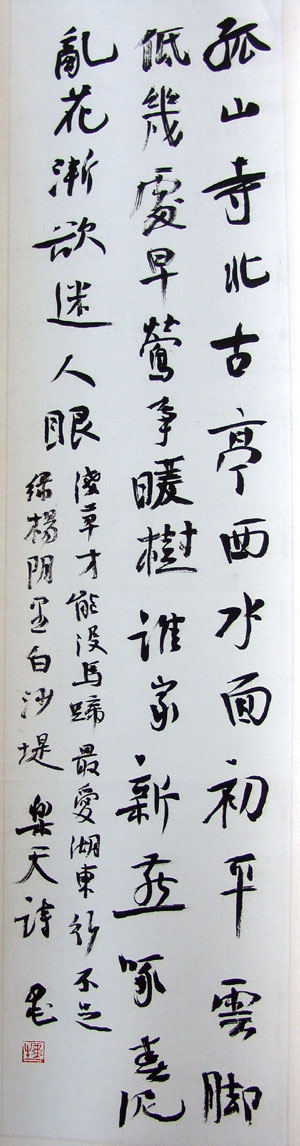 孤山寺北古亭西水面初平雲脚
低幾處早鶯爭暖樹誰家新燕啄春泥
亂花漸欲迷人眼
淺草才能沒馬蹄最愛湖東行不足
綠楊陰里白沙堤樂天詩